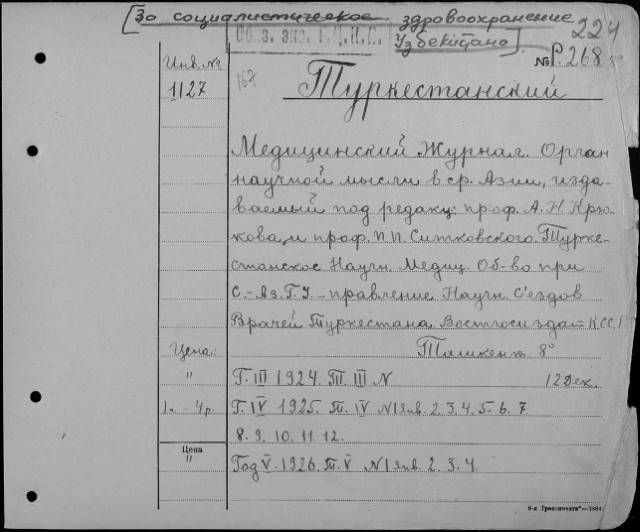 [За социалистическое здравоохранение
Узбекистана]
224
№ Р. 268
Инв. №
1127
167
Туркестанский
Медицинский Журнал. Орган
научной мысли в ср. Азии, изда-
ваемый под редакц: проф. А. Н. Крю-
кова, и проф. П. П. Ситковского. Турке-
станское Научн. Медиц. Об-во при
С.-Аз. Г. У. - правление Научн. С'ездов
Врачей Туркестана. Востгосиздат К.С.С.Р.
Ташкент 8°
Цена:
"
Г. III 1924. Т. III N 12 Дек.
1 н. - 4 р.
Г. IV 1925. Т. IV N 1 янв. 2. 3. 4. 5. 6. 7.
8. 9. 10. 11. 12.
Цена
"
Год V. 1926. Т. V N 1 янв. 2. 3. 4.